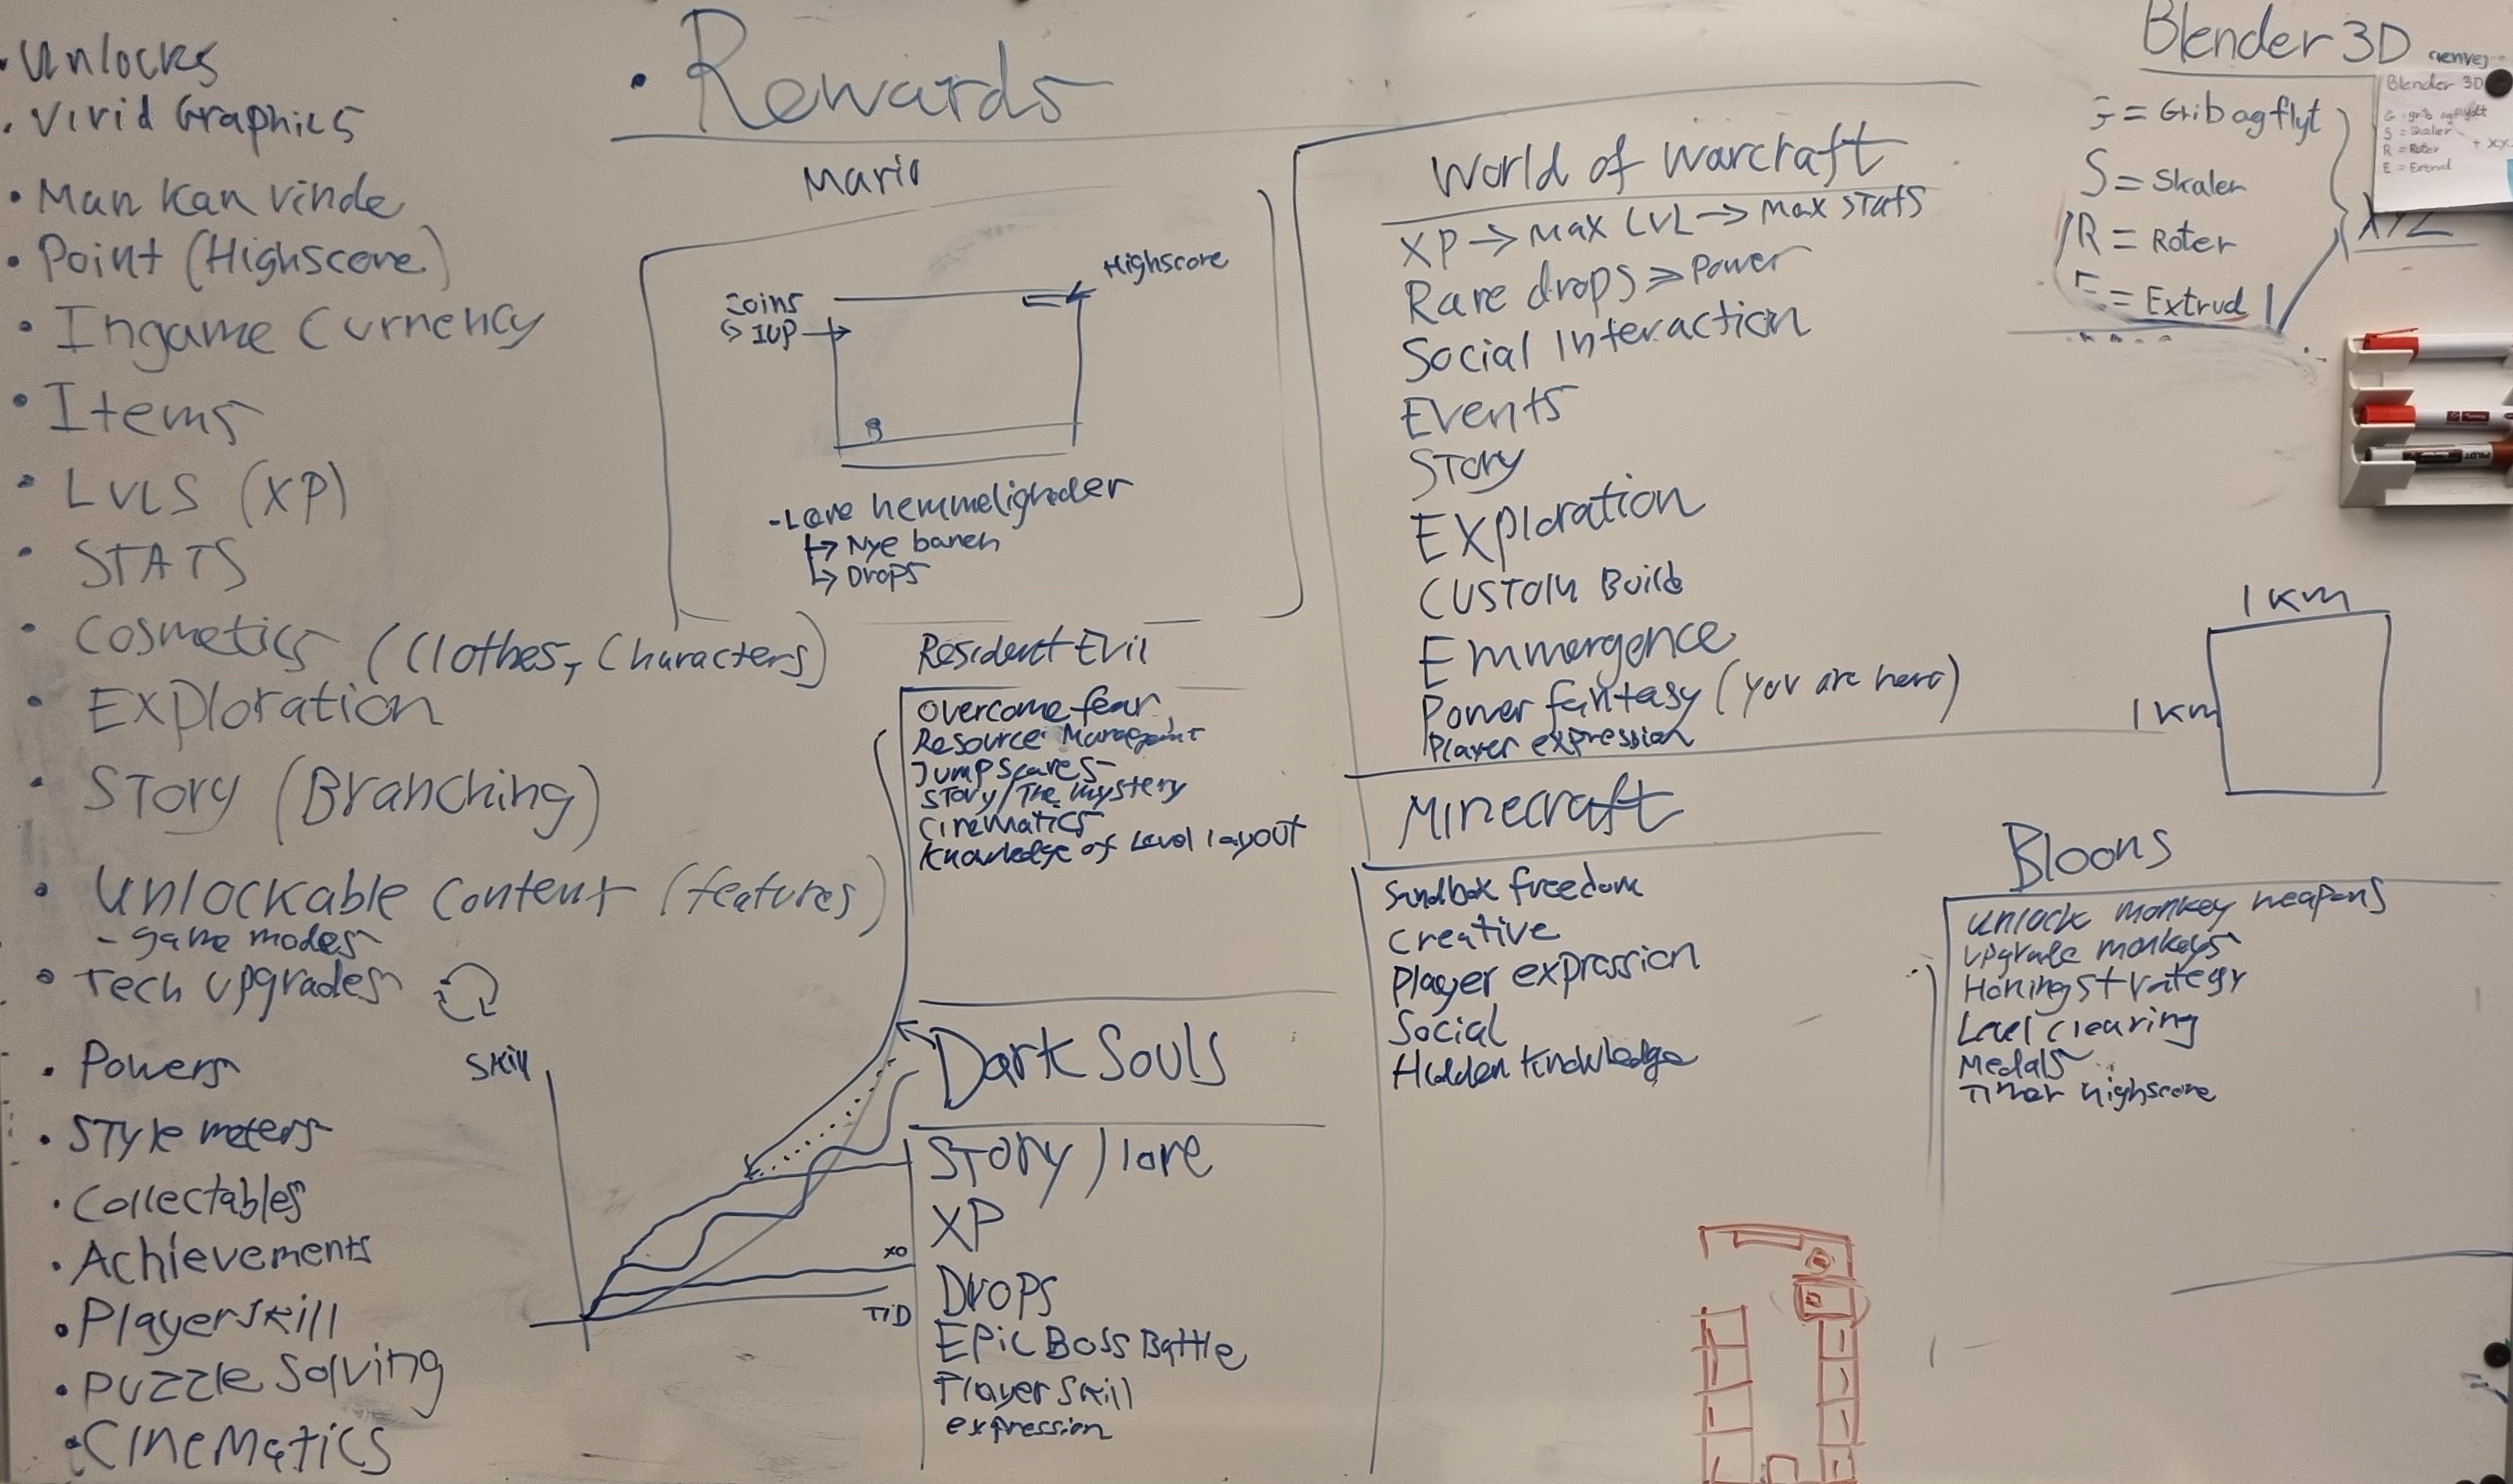 • Rewards
• Unlocks
• Vivid Graphics
• Man kan vinde
• Point (Highscore)
• Ingame Currency
• Items
• LVLS (XP)
• STATS
• Cosmetics (Clothes, Characters)
• Exploration
• Story (Branching)
• Unlockable Content (features)
- game modes
• Tech upgrades
• Powers
• Style meters
• Collectables
• Achievements
• Player skill
• Puzzle Solving
• Cinematics
Mario
Highscore
Coins
↳ 1UP →
- Lave hemmeligheder
↳ Nye baner
↳ Drops
Resident Evil
Overcome fear
Resource Management
Jumpscares
Story/The mystery
Cinematics
Knowledge of Level layout
Skill
XO
TiD
Dark Souls
Story / lore
XP
Drops
Epic Boss Battle
Player Skill
expression
World of Warcraft
XP → Max LVL → Max Stats
Rare drops => Power
Social Interaction
Events
Story
Exploration
Custom Build
Emmergence
Power fantasy (you are hero)
Player expression
Minecraft
Sandbox freedom
Creative
Player expression
Social
Hidden knowledge
Blender 3D
G = Grib og flyt
S = Skaler
R = Roter
E = Extrud
XYZ
Blender 3D
S = Skaler
R = Roter
E = Extrud
1 KM
1 KM
Bloons
Unlock monkey weapons
Upgrade monkeys
Honing strategy
Level clearing
Medals
Timer highscore
PILOT